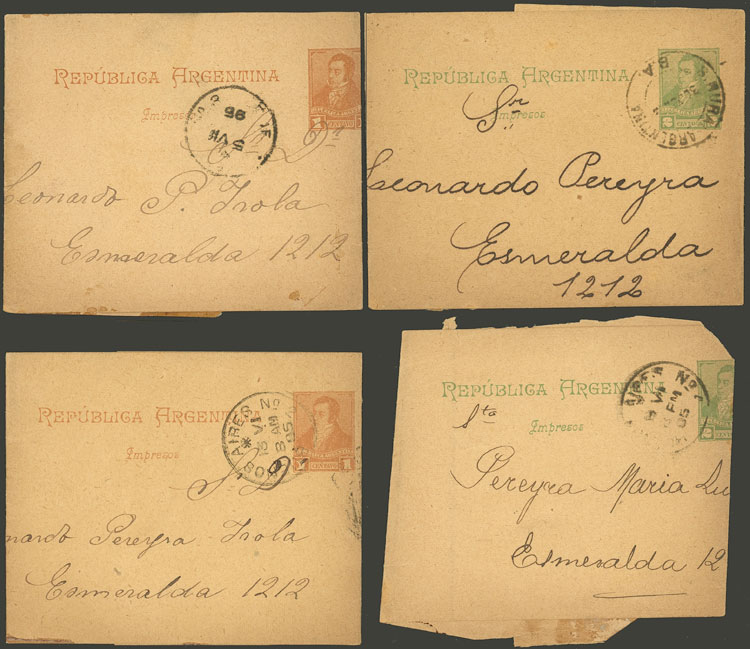 REPÚBLICA ARGENTINA
Impresos
1
95
5 VII
Leonardo P. Irola
Esmeralda 1212
REPÚBLICA ARGENTINA
Impresos
2 CENTAVOS
ARGENTINA
B.A.
Sr
Leonardo Pereyra
Esmeralda
1212
REPÚBLICA ARGENTINA
Impresos
1 CENTAVO 1
OS AIRES No
VI
8 AM
95
nardo Pereyra Irola
Esmeralda 1212
REPÚBLICA ARGENTINA
Impresos
AIRES No
VI
PM
95
Sta
Pereyra Maria Lu
Esmeralda 12